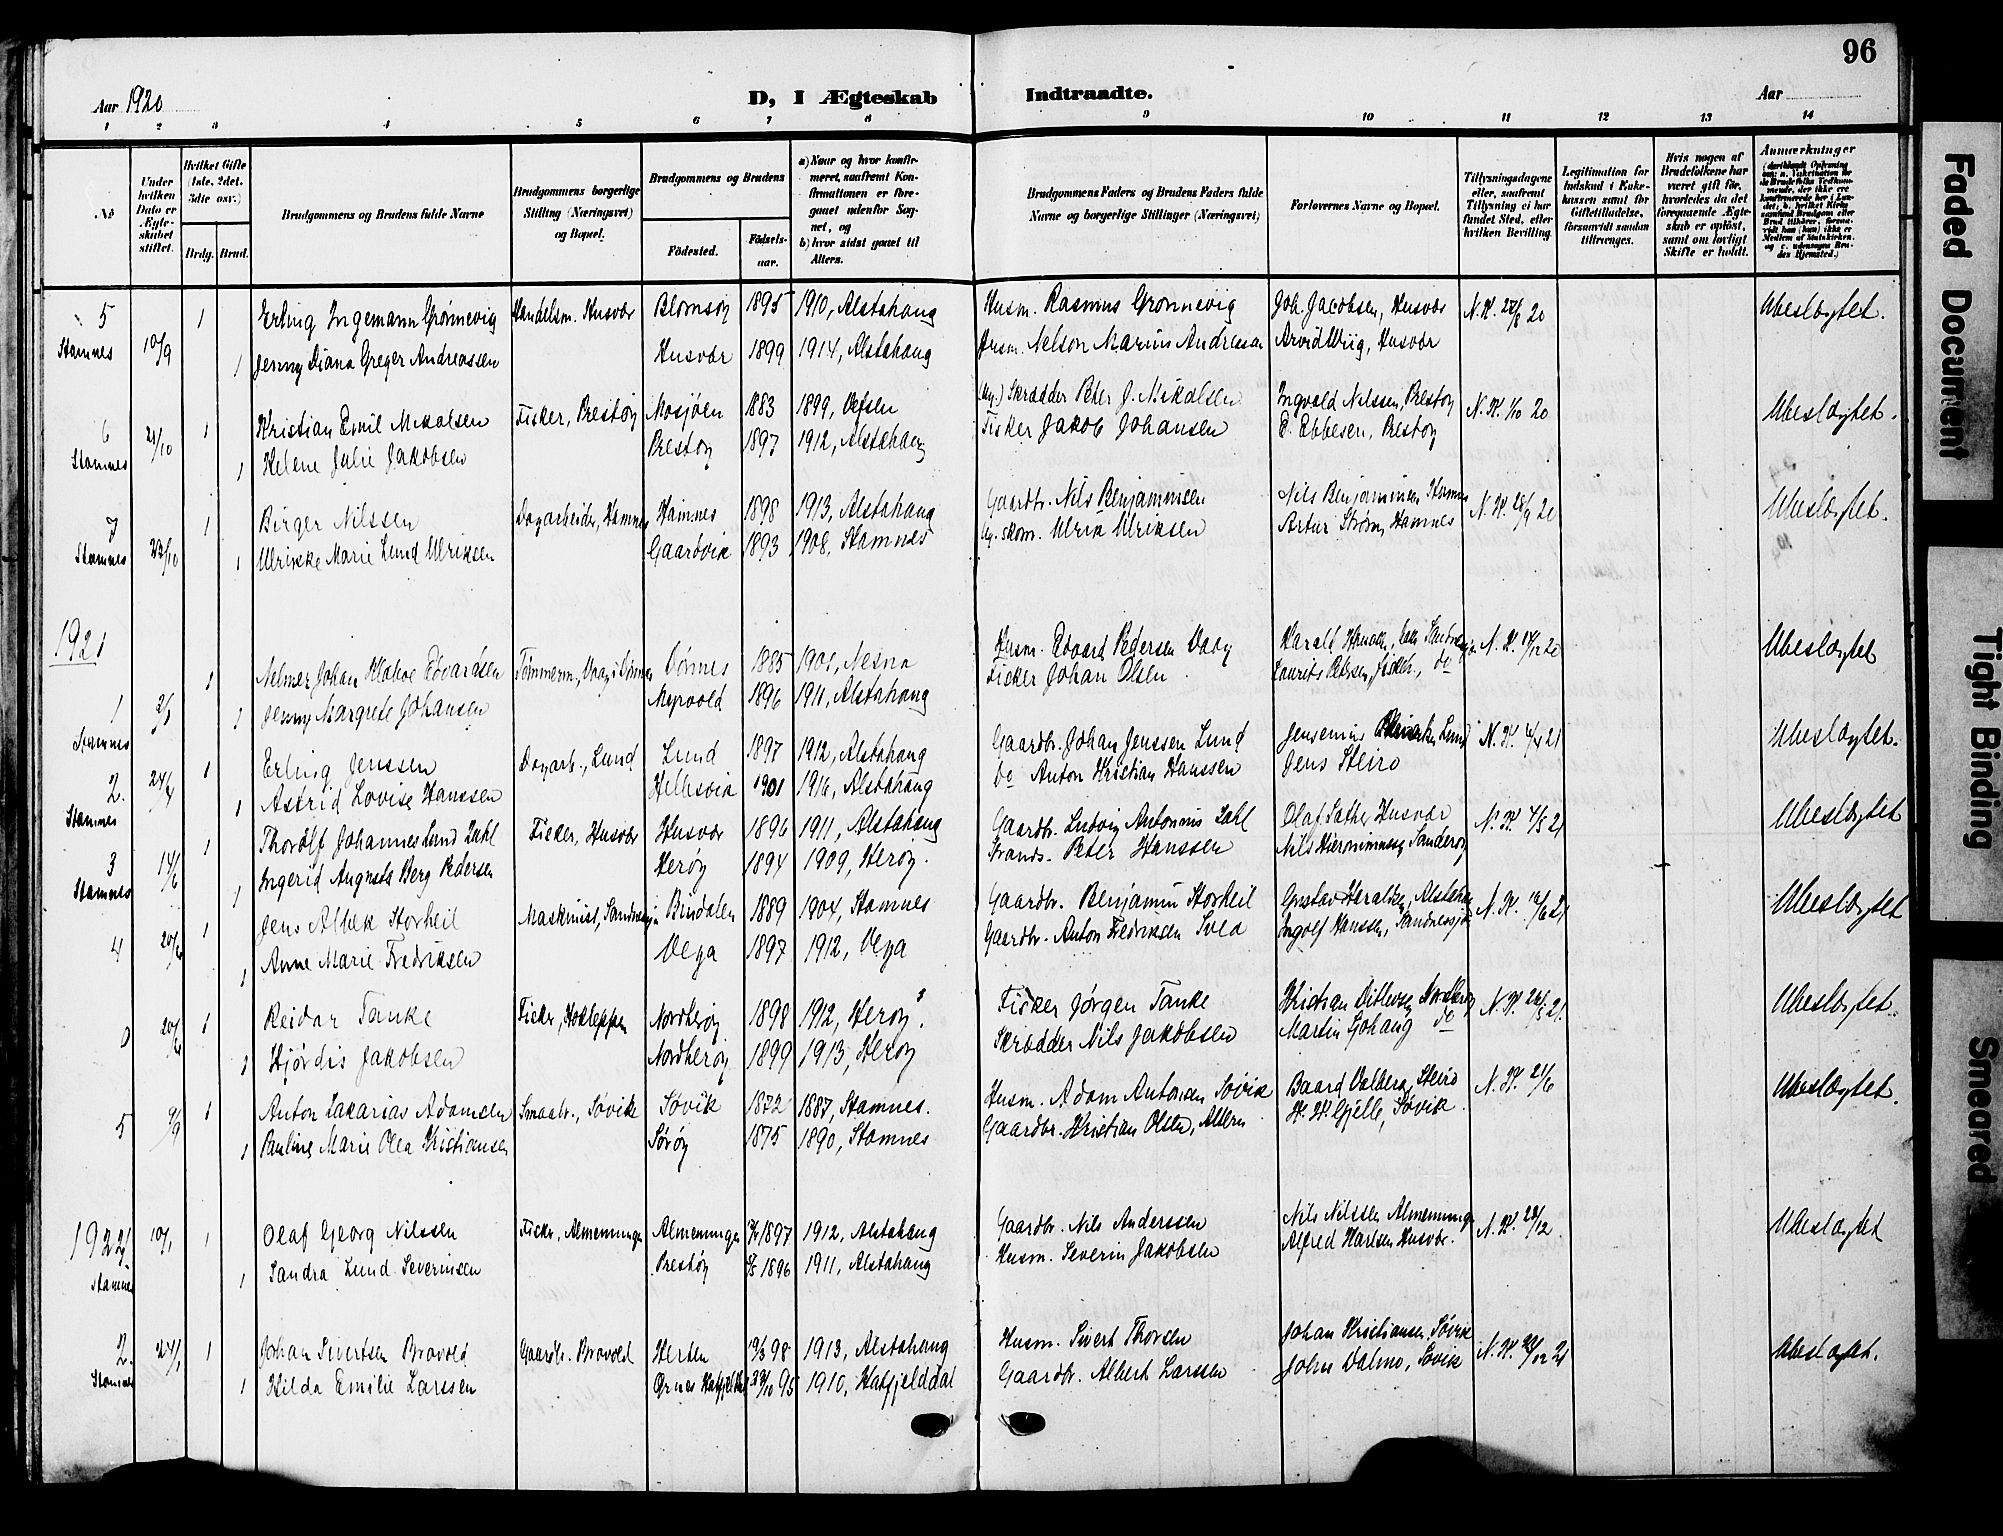 96
Aar 1920
D, I Ægteskab Indtraadte.
Aar
1 2 3 4 5 6 7 8 9 10 11 12 13 14
No
Under hvilken Dato er Ægteskabet stiftet.
Hvilket Gifte (1ste, 2det, 3die osv.)
Brdg. Brud.
Brudgommens og Brudens fulde Navne
Brudgommens borgerlige Stilling (Næringsvei) og Bopæl.
Brudgommens og Brudens
Födested. Födselsaar.
a) Naar og hvor konfirmeret, saafremt Konfirmationen er foregaaet udenfor Sognet, og
b) hvor sidst gaaet til Alters.
Brudgommens Faders og Brudens Faders fulde Navne og borgerlige Stillinger (Næringsvei)
Forlovernes Navne og Bopæl.
Tillysningsdagene eller, saafremt Tillysning ei har fundet Sted, efter hvilken Bevilling.
Legitimation for Indskud i Enkekassen samt for Giftetilladelse, forsaavidt saadan tiltrænges.
Hvis nogen af Brudefolkene har været gift för, hvorledes da det foregaaende Ægteskab er oplöst, samt om lovligt Skifte er holdt.
Anmærkninger
5 10/9 1 Erling Ingemann Grønnevig Handelsm. Husvær Blomsøy 1895 1910, Alstahaug Husm. Rasmus Grønnevig Joh. Jacobsen, Husvær N. K. 28/8 20 Ubeslægtet.
Stamnes 1 Jenny Diana Greger Andreassen Husvær 1899 1914, Alstahaug Husm. Nelson Marius Andreassen Arvid Wiig, Husvær
6 24/10 1 Kristian Emil Mikalsen Fisker, Prestøy Mosjøen 1883 1899, Vefsen Skrædder Peter J. Mikalsen Ingvald Nilssen, Prestøy N. K. 1/10 20 Ubeslægtet.
Stamnes 1 Helene Julie Jakobsen Prestøy 1897 1912, Alstahaug Fisker Jakob Johansen E. Ebbesen, Prestøy
7 23/10 1 Birger Nilssen Dagarbeider, Hamnes Hamnes 1898 1913, Alstahaug Gaardbr. Nils Benjaminsen Nils Benjaminsen Hamnes N. K. 28/9 20 Ubeslægtet.
Stamnes 1 Ulrikke Marie Lund Ulriksen Gaardvik 1893 1908, Stamnes Ulrik Ulriksen Artur Strøm, Hamnes
1921
1 2/1 1 Johan Edvardsen Dønnes 1885 1901, Nesna Husm. Edvard Pedersen Vaag N. K. 14/12 20 Ubeslægtet
Stamnes 1 Jenny Margrete Johansen 1896 1911, Alstahaug Fisker Johan Olsen Laurits Petersen, Fisker, do
2. 24/4 1 Erling Jenssen Dagarb., Lund Lund 1897 1912, Alstahaug Gaardbr. Johan Jenssen Lund Jensenius Lund N. K. 21 Ubeslægtet.
Stamnes 1 Astrid Lovise Hanssen Hellesvik 1901 1916, Alstahaug do Anton Kristian Hanssen Jens Steiro
3 14/6 1 Thorolf Johannes Lund Zahl Fisker, Husvær Husvær 1896 1911, Alstahaug Gaardbr. Ludvig Antonius Zahl Olaf Sather Husvær N. K. 4/5 21 Ubeslægtet
Stamnes 1 Ingerid Augusta Berg Pedersen Herøy 1894 1909, Herøy. Strands. Peter Hanssen Nils Hieronimussen Sanderøy
4 20/6 1 Jens Albek Storheil Maskinist, Sandnessjøen Bindalen 1889 1904, Stamnes Gaardbr. Benjamin Storheil Gustav Heraldsen, Alstahaug N. K. 10/6 21 Ubeslægtet
1 Anne Marie Fredriksen Vega 1897 1912, Vega Gaardbr. Anton Fredriksen Ingolf Hanssen, Sandnessjøen
0 20/6 1 Reidar Tanke Fisker, Nordherøy 1898 1912, Herøy. Fisker Jørgen Tanke Kristian Ditlevsen, Nordherøy N. K. 28/5 21. Ubeslægtet.
1 Hjørdis Jakobsen Nordherøy 1899 1913, Herøy Skrædder Nils Jakobsen Martin Gohaug do
5 4/9 1 Anton Zakarias Adamsen Smaabr., Søvik Søvik 1872 1887, Stamnes. Husm. Adam Antonsen Søvik Baard Valberg, Steiro N. K. 21/6 Ubeslægtet.
1 Pauline Marie Olea Kristiansen Sørøy 1875 1890, Stamnes Gaardbr. Kristian Olsen, H. H. Gjelle, Søvik.
1922 10/1 1 Olaf Georg Nilssen Fisker, Almenningen Almenningen 1897 1912, Alstahaug Gaardbr. Nils Anderssen Nils Nilssen Almenningen N. K. 29/12. Ubeslægtet
Stamnes 1 Sandra Lund Severinsen Prestøy 1896 1911, Alstahaug Husm. Severin Jakobsen Alfred Karlsen Husvær.
2. 24/1 1 Johan Sivertsen Brovold Gaardbr. Brovold Herøen 19/3 98 1913, Alstahaug Husm. Sivert Thorsen Johan Kristiansen, Søvik N. K. 28/12 21 Ubeslægtet.
Stamnes 1 Hilda Emilie Larssen Ørnes Hatfjelddal 28/10 95 1910, Hatfjelddal Gaardbr. Albert Larssen John Dalmo, Søvik
Faded Document
Tight Binding
Smeared